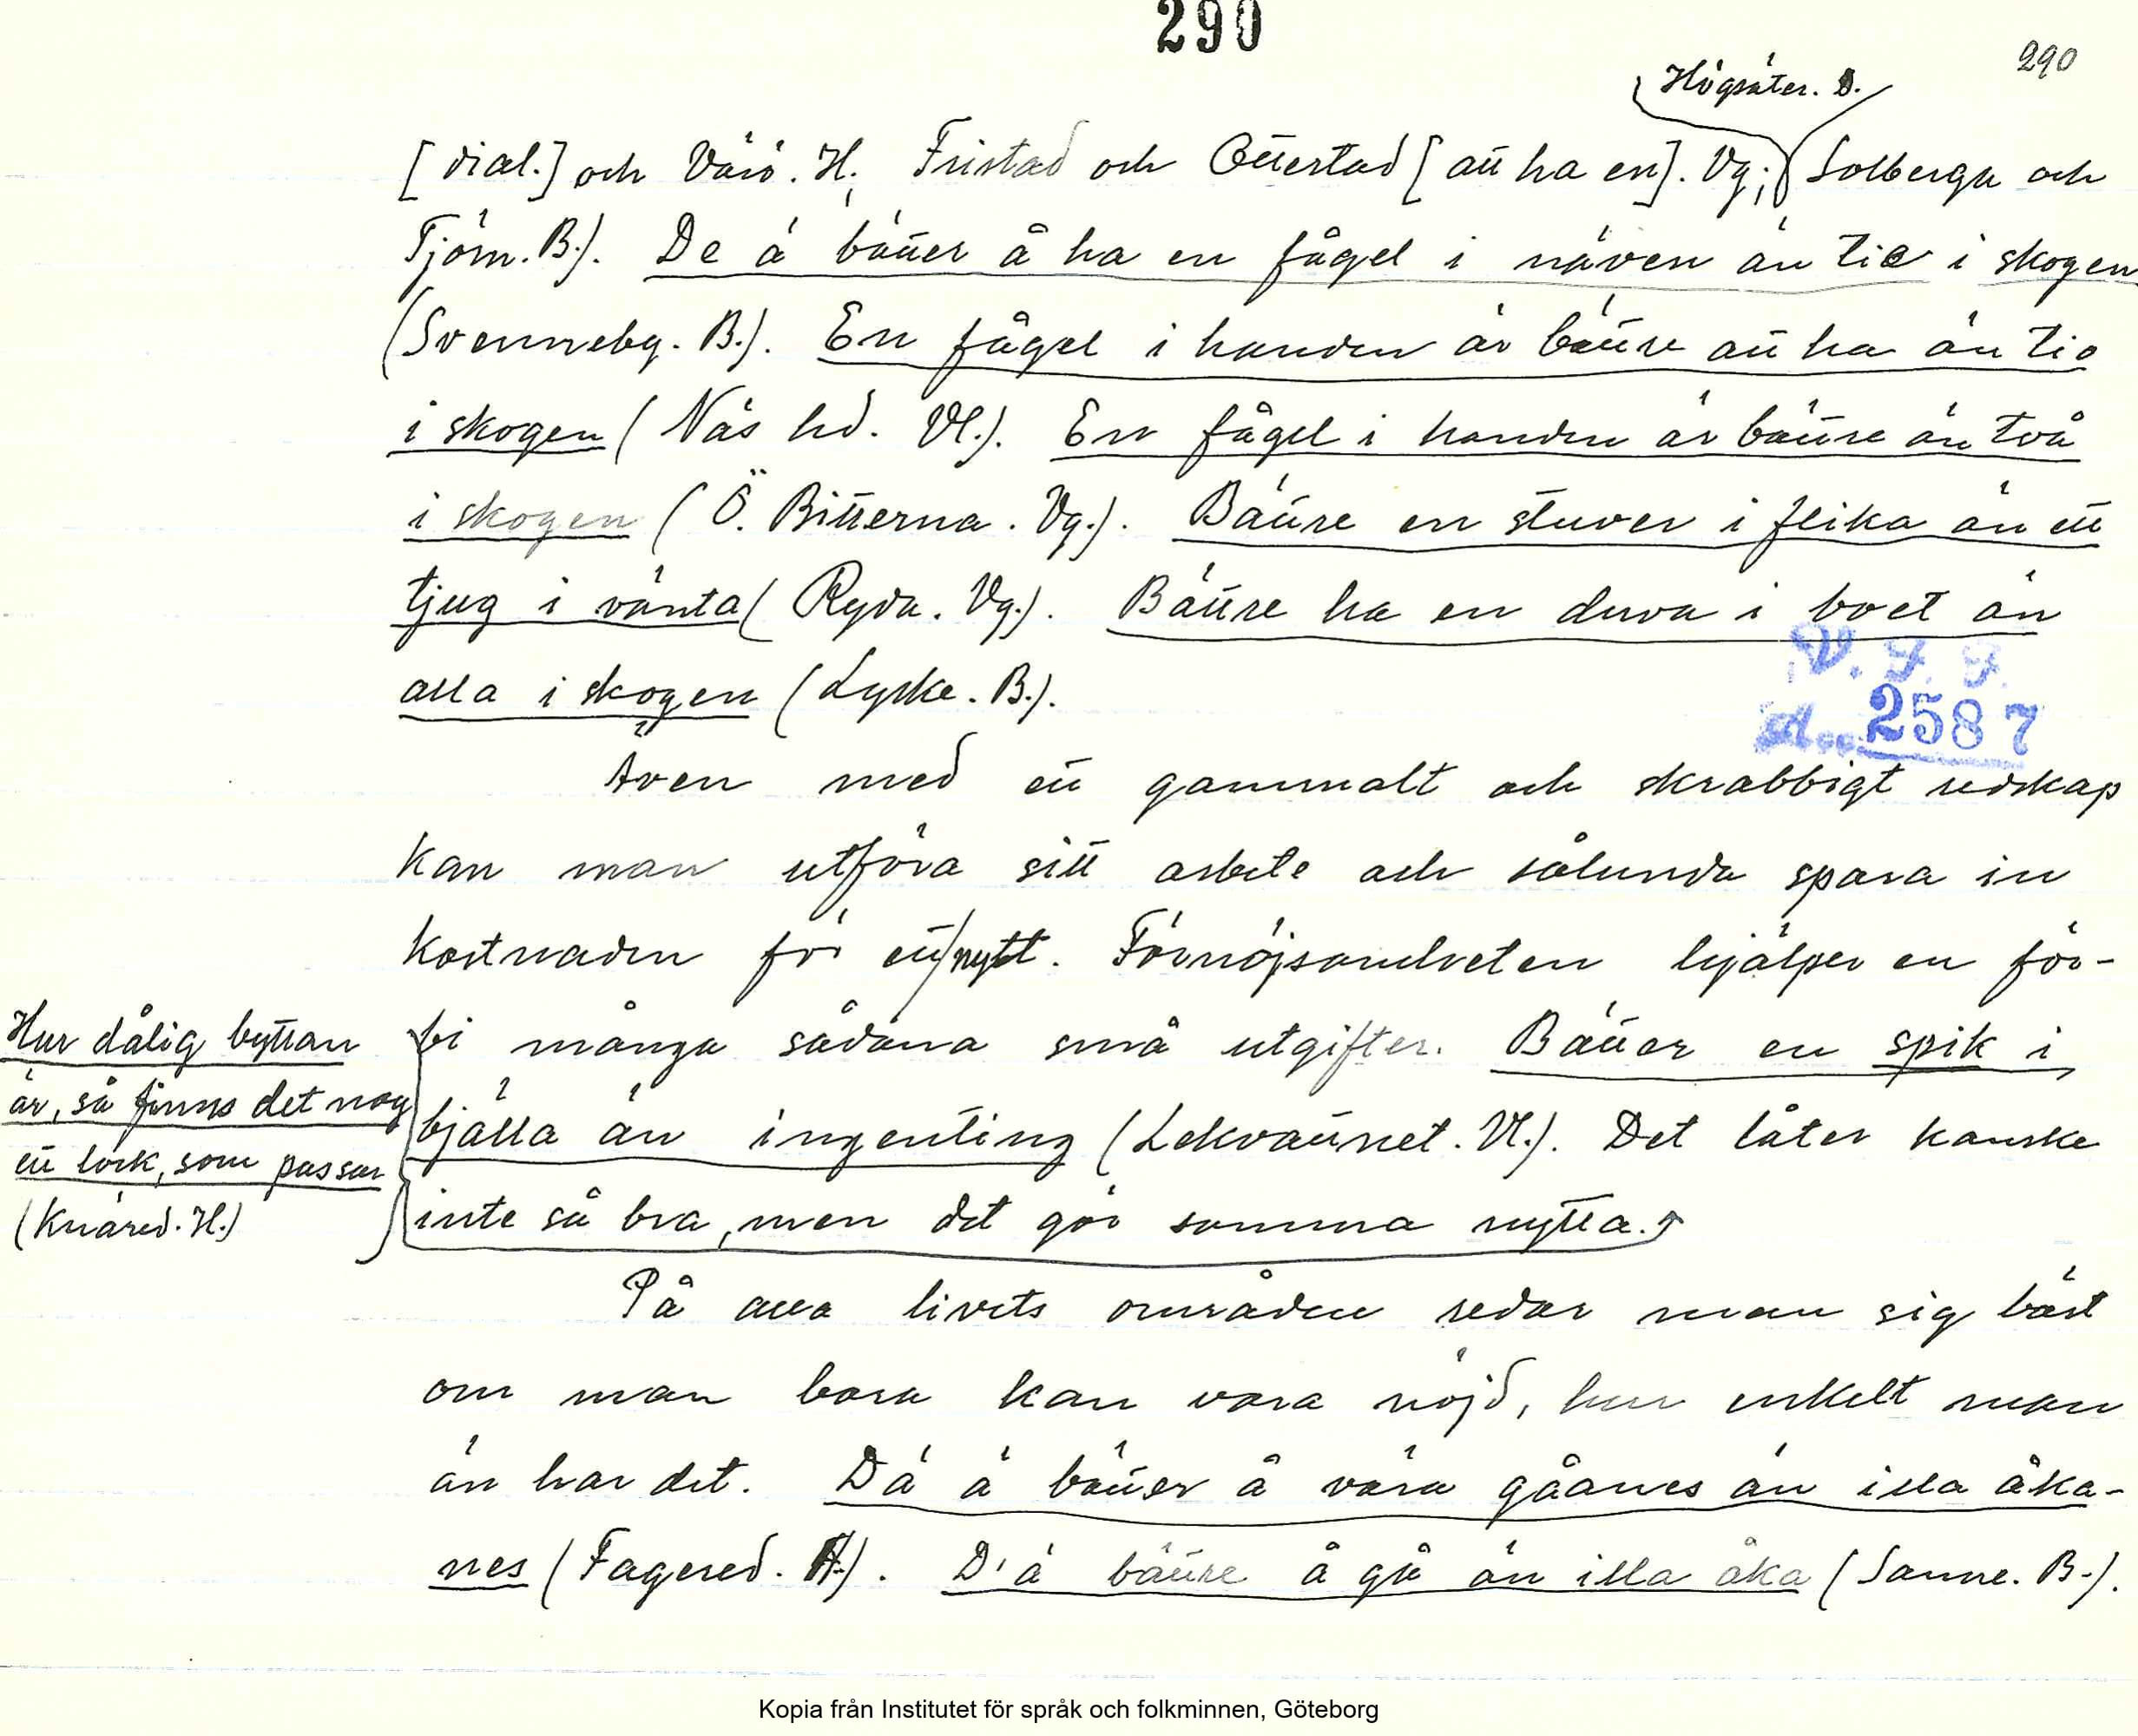 290
290
Högsäter. D.
[dial.] och Värö. H.; Fristad och Otterstad [att ha en]. Vg.; Solberga och
Tjörn. B.). De ä bätter å ha en fågel i näven än tie i skogen
(Svenneby. B.). En fågel i handen är bättre att ha än tio
i skogen (Näs hd. Vl.). En fågel i handen är bättre än två
i skogen (Ö. Bitterna. Vg.). Bättre en stuver i flika än ett
tjug i vänta (Ryda. Vg.). Bättre ha en duva i boet än
alla i skogen (Lyske. B.).
V. F. F.
Acc. 2587
Även med ett gammalt och skrabbigt redskap
kan man utföra sitt arbete och sålunda spara in
kostnaden för ett nytt. Förnöjsamheten hjälper en för-
bi många sådana små utgifter. Bätter en spik i
bjälla än ingenting (Lekvattnet. Vl.). Det låter kanske
inte så bra, men det gör samma nytta.
Hur dålig byttan
är, så finns det nog
ett lock, som passar
(Knäred. H.)
På alla livets områden redar man sig bäst
om man bara kan vara nöjd, hur enkelt man
än har det. Dä ä bätter å vara gåanes än illa åka-
nes (Fagered. H.). D'ä bättre å gå än illa åka (Sanne. B.).
Kopia från Institutet för språk och folkminnen, Göteborg